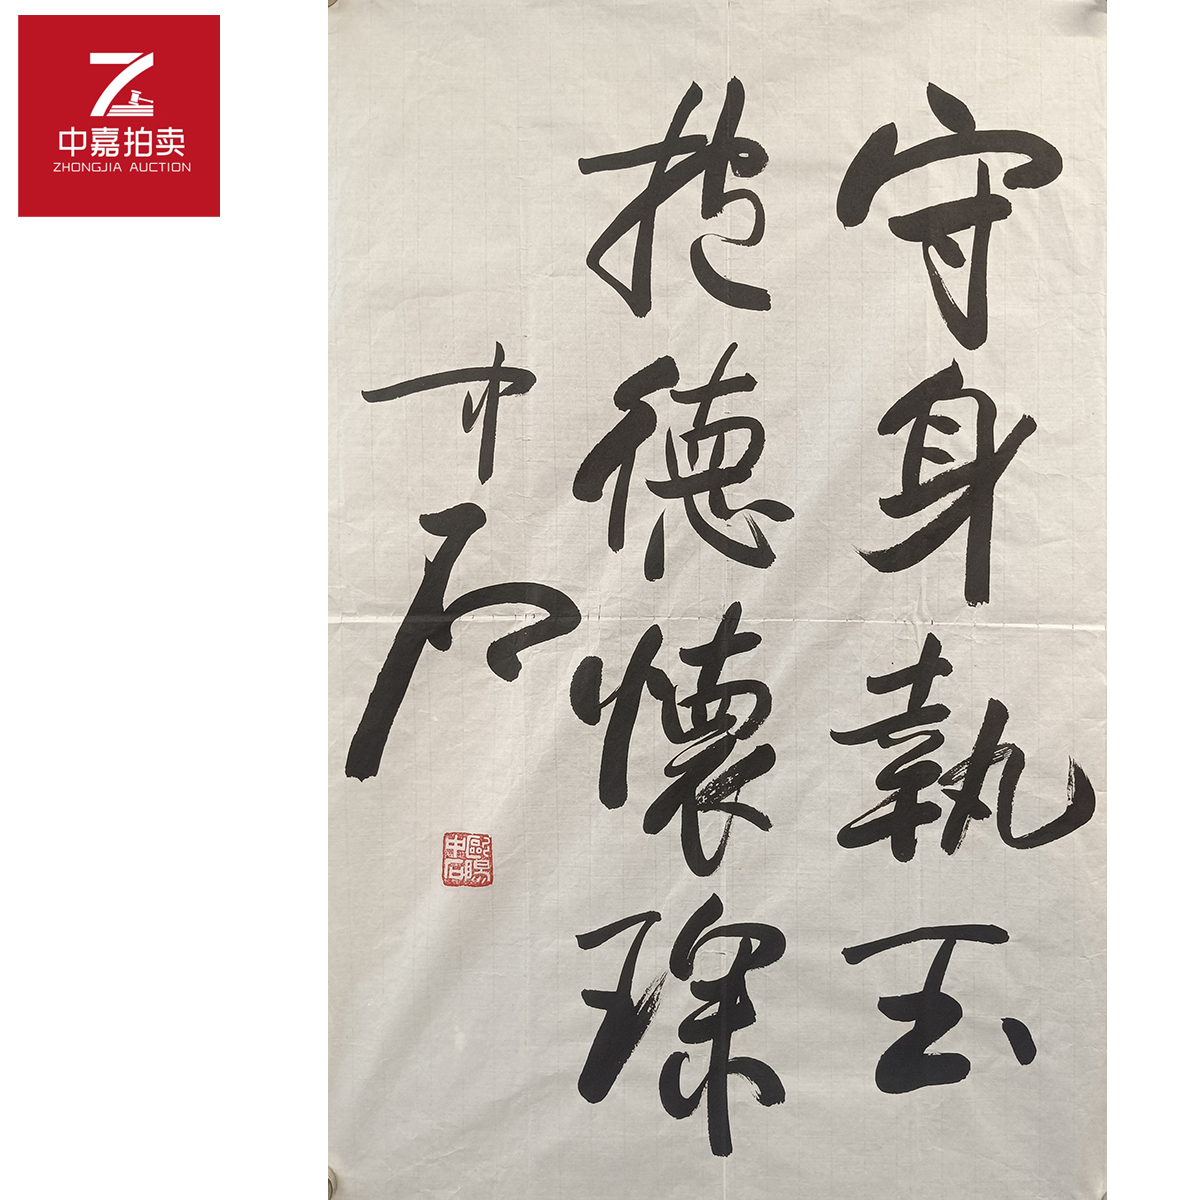 中嘉拍卖
ZHONGJIA AUCTION
守身執玉
抱德懷琛
中石
歐陽中石